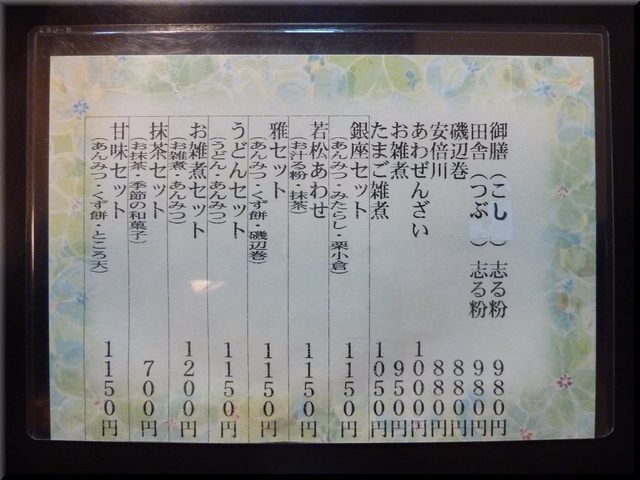 御膳（こし）志る粉 980円
田舎（つぶ）志る粉 980円
磯辺巻 880円
安倍川 880円
あわぜんざい 1000円
お雑煮 950円
たまご雑煮 1050円
銀座セット 1150円
（あんみつ・みたらし・栗小倉）
若松あわせ 1150円
（お汁る粉・抹茶）
雅セット 1150円
（あんみつ・くず餅・磯辺巻）
うどんセット 1150円
（うどん・あんみつ）
お雑煮セット 1200円
（お雑煮・あんみつ）
抹茶セット 700円
（お抹茶・季節の和菓子）
甘味セット 1150円
（あんみつ・くず餅・ところ天）